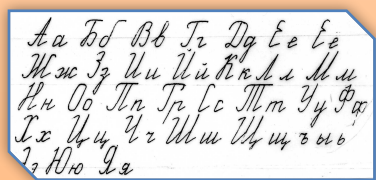 Аа Бб Вв Гг Дд Ее Её
Жж Зз Ии Йй Кк Лл Мм
Нн Оо Пп Гр Сс Тт Уу Фф
Хх Цц Чч Шш Щщ ъ ы ь
Ээ Юю Яя